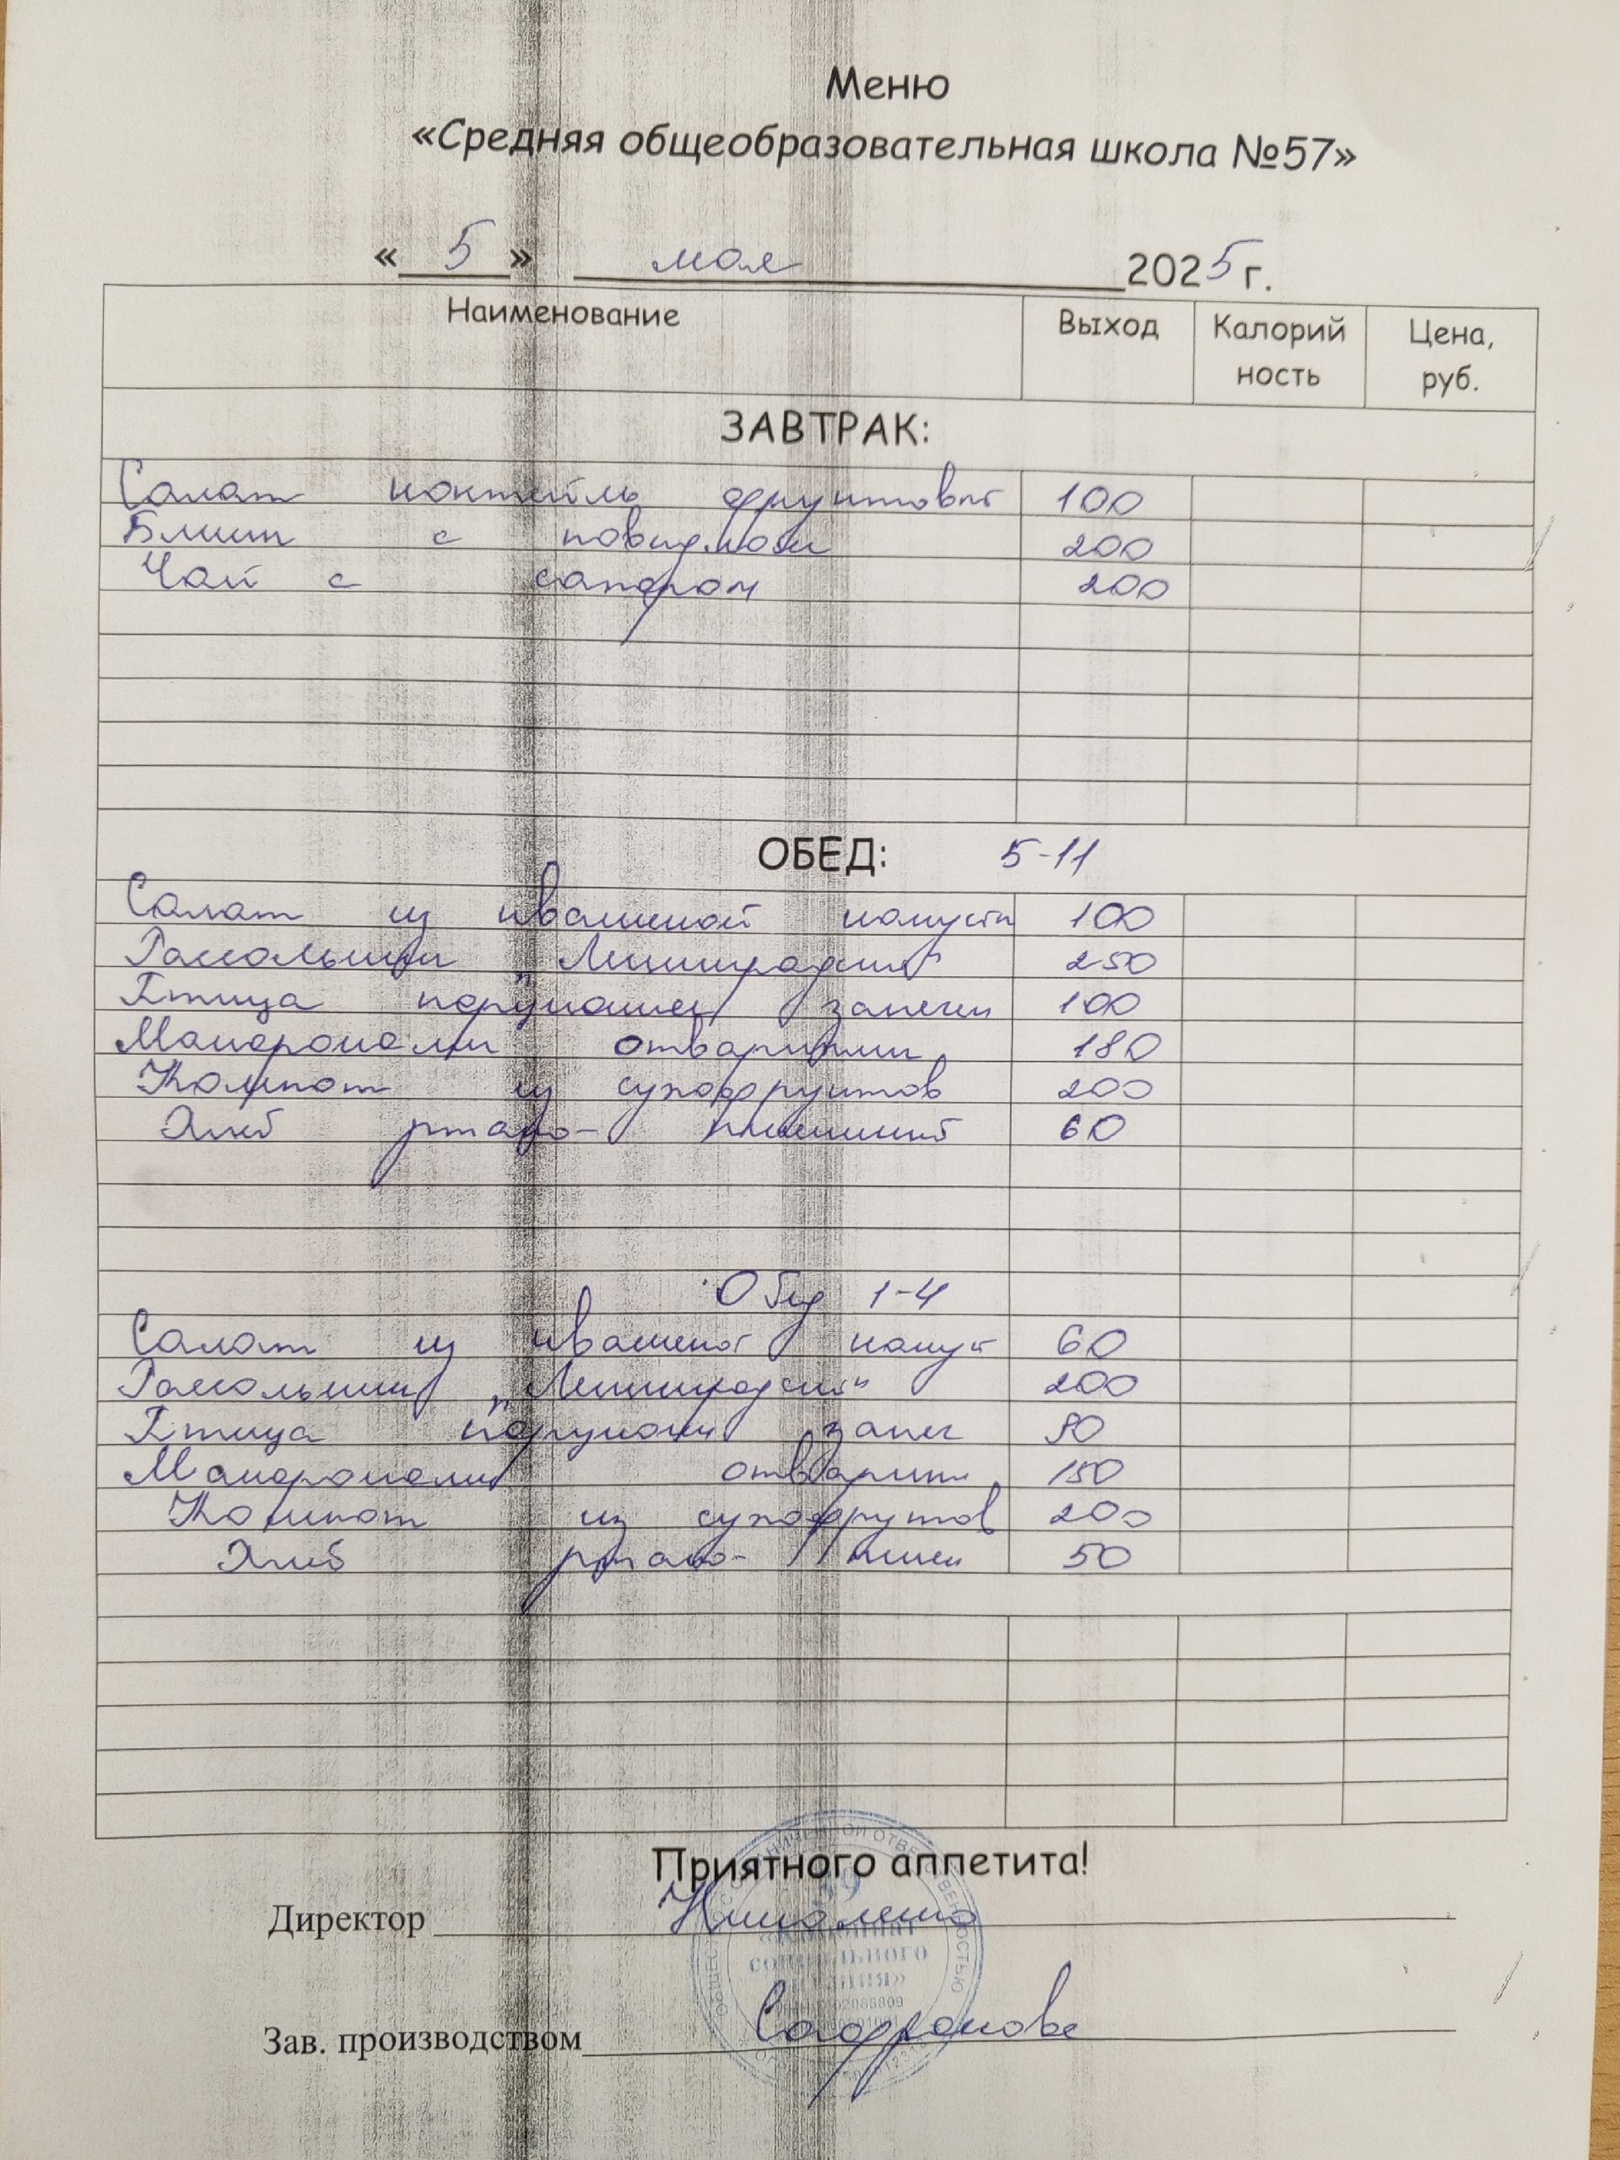 Меню
«Средняя общеобразовательная школа №57»
« 5 » мая 2025 г.
Наименование Выход Калорий ность Цена, руб.
ЗАВТРАК:
Салат коктейль фруктовый 100
Блины с повидлом 200
Чай с сахаром 200
ОБЕД: 5-11
Салат из квашеной капусты 100
Рассольник "Ленинградский" 250
Птица порционная запечен 100
Макароны отварными 180
Компот из сухофруктов 200
Хлеб ржано- пшеничный 60
Обед 1-4
Салат из квашеной капуст 60
Рассольник „Ленинградский" 200
Птица порционн запеч 90
Макароны отварны 150
Компот из сухофрутов 200
Хлеб ржано- пшен 50
Приятного аппетита!
Директор Николенко
Зав. производством Сафронова